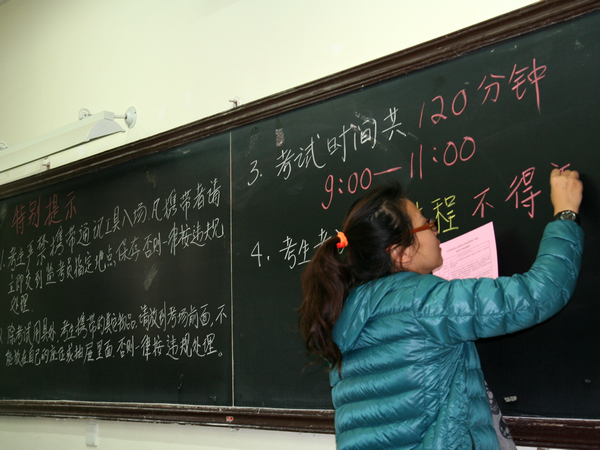 特别提示
1. 考生严禁携带通讯工具入场,凡携带者请
立即放到监考员指定地点保存,否则一律按违规
处理.
2. 除考试用具外,考生携带的其它物品,请放到考场前面,不
能放在自己的座位或抽屉里面,否则一律按违规处理。
3. 考试时间共 120分钟
9:00—11:00
4. 考生
程 不得